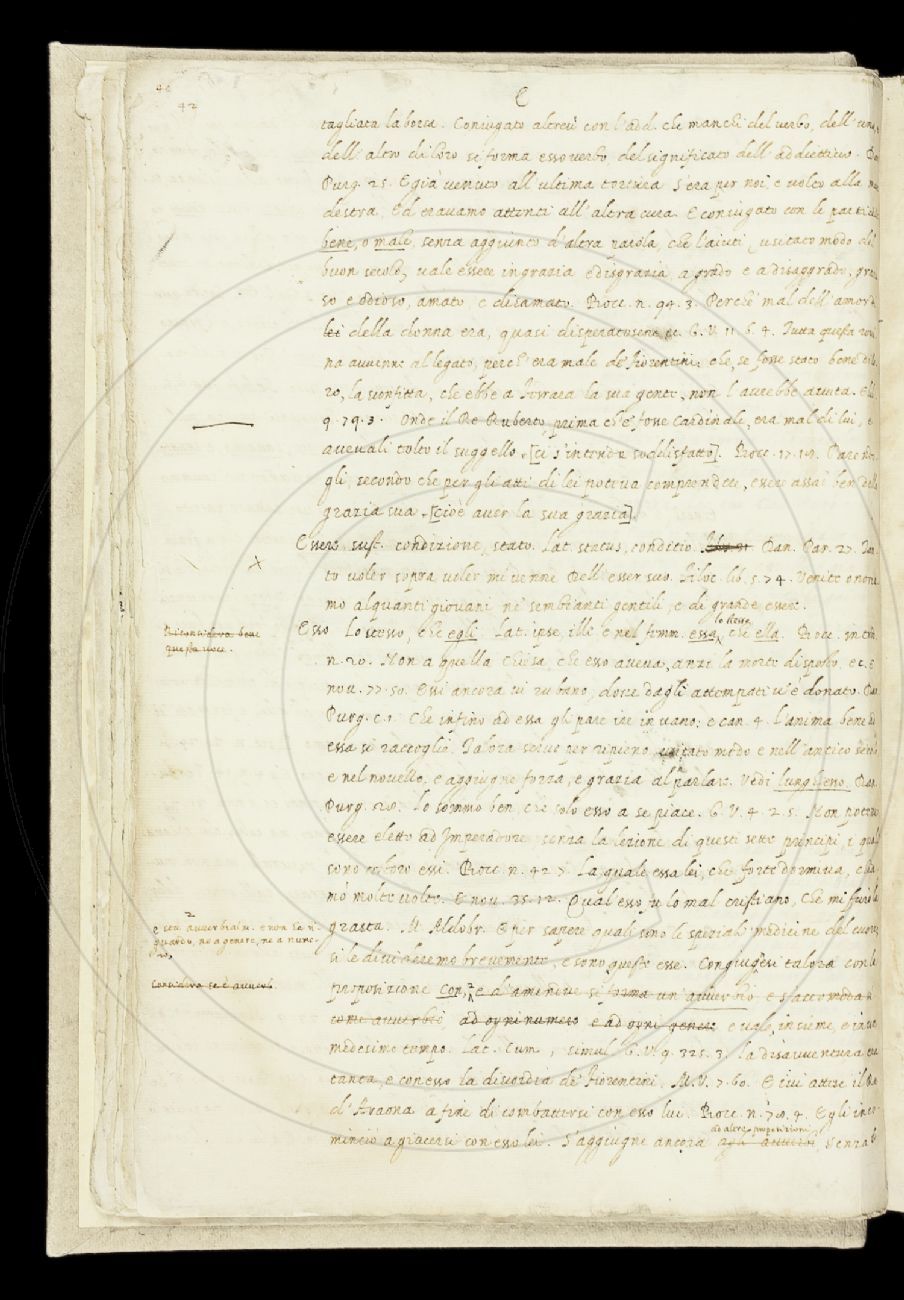 42
42
E
tagliata la borsa. Coniugato altresì con l'add. che manchi del verbo, dell'
dell'altro di loro si forma esso verbo del significato dell'addiettivo.
Purg. 25. E già venuto all'ultima tortura S'era per noi, e volto alla
destra, Ed eravamo attenti all'altra cura. E coniugato con le
bene, o male, senza aggiunto d'altra parola, che l'aiuti, usitato modo del
buon secolo, vale essere in grazia e disgrazia, a grado e a disaggrado,
so e odioso, amato e disamato. Bocc. n. 94. 3. Perchè mal dell'amor
lei della donna era, quasi disperatosene ec. G. V. 11. 6. 4. Tutta questa
na avvenne al legato, perch'era male de' fiorentini: che, se fosse stato bene di
ro, la sconfitta, che ebbe a Ferrara la sua gente, non l'avrebbe avuta.
9. 79. 3. Onde il Re Ruberto, prima ch'e' fosse Cardinale, era mal di lui, e
aveuali tolto il suggello. [ci s'intende soddisfatto]. Bocc. 17. 19.
gli, secondo che per gli atti di lei poteva comprendere, essere assai ben della
grazia sua. [cioè aver la sua grazia].
Essere sust. condizione, stato. Lat. status, conditio. Dan. Par. 27.
to voler sopra voler mi venne Dell'esser suo. Filoc. lib. 5. 74. Venite
mo alquanti giovani ne' sembianti gentili, e di grande essere.
Riconsidera bene
questa voce.
lo stesso
Esso Lo stesso, che egli. Lat. ipse, ille e nel femm. essa, che ella. Bocc.
n. 20. Non a quella Chiesa, che esso aveva, anzi la morte disposto, ec. E
nov. 77. 50. Essi ancora vi rubano, dove dagli attempati v'è donato. Dan.
Purg. c. 1. Che infino ad essa gli pare ire in vano: e can. 4. L'anima bene ad
essa si raccoglie. Talora serve per ripieno, usitato modo e nell'antico secolo
e nel novello, e aggiugne forza, e grazia al parlare. Vedi lunghesso. Dan.
Purg. 28. Lo sommo ben, che solo esso a se piace. G. V. 4. 2. 5. Non potesse
essere eletto ad Imperadore senza la lezione di questi sette principi, i quali
sono costoro essi. Bocc. n. 42. 7. La quale essa lei, che forte dormiva, chia
mò molte volte. E nov. 35. 12. Qual esso fu lo mal cristiano, Che mi furò la
2
e sta avverbialm. e non ha ri-
guardo, ne a genere, ne a nume-
ro.
grasta. M. Aldobr. E per sapere quali sono le speziali medicine del cuore
si le diviseremo brevemente, e sono queste esse. Congiugnesi talora con la
Considera se è avverb.
preposizione con, e d'amendue si forma un' avverbio, e s'accomoda
come avverbio ad ogni numero e ad ogni genere e vale, insieme, e in un
medesimo tempo. Lat. Cum, simul. G. V. 9. 325. 3. La disavventura
tanta, e con esso la discordia de' Fiorentini. M. V. 7. 60. E ivi attese il Re
d'Araona a fine di combattersi con esso lui. Bocc. n. 79. 4. Egli inco-
ad altre preposizioni
minciò a giacersi con esso lei. S'aggiugne ancora agli avverbi, senza